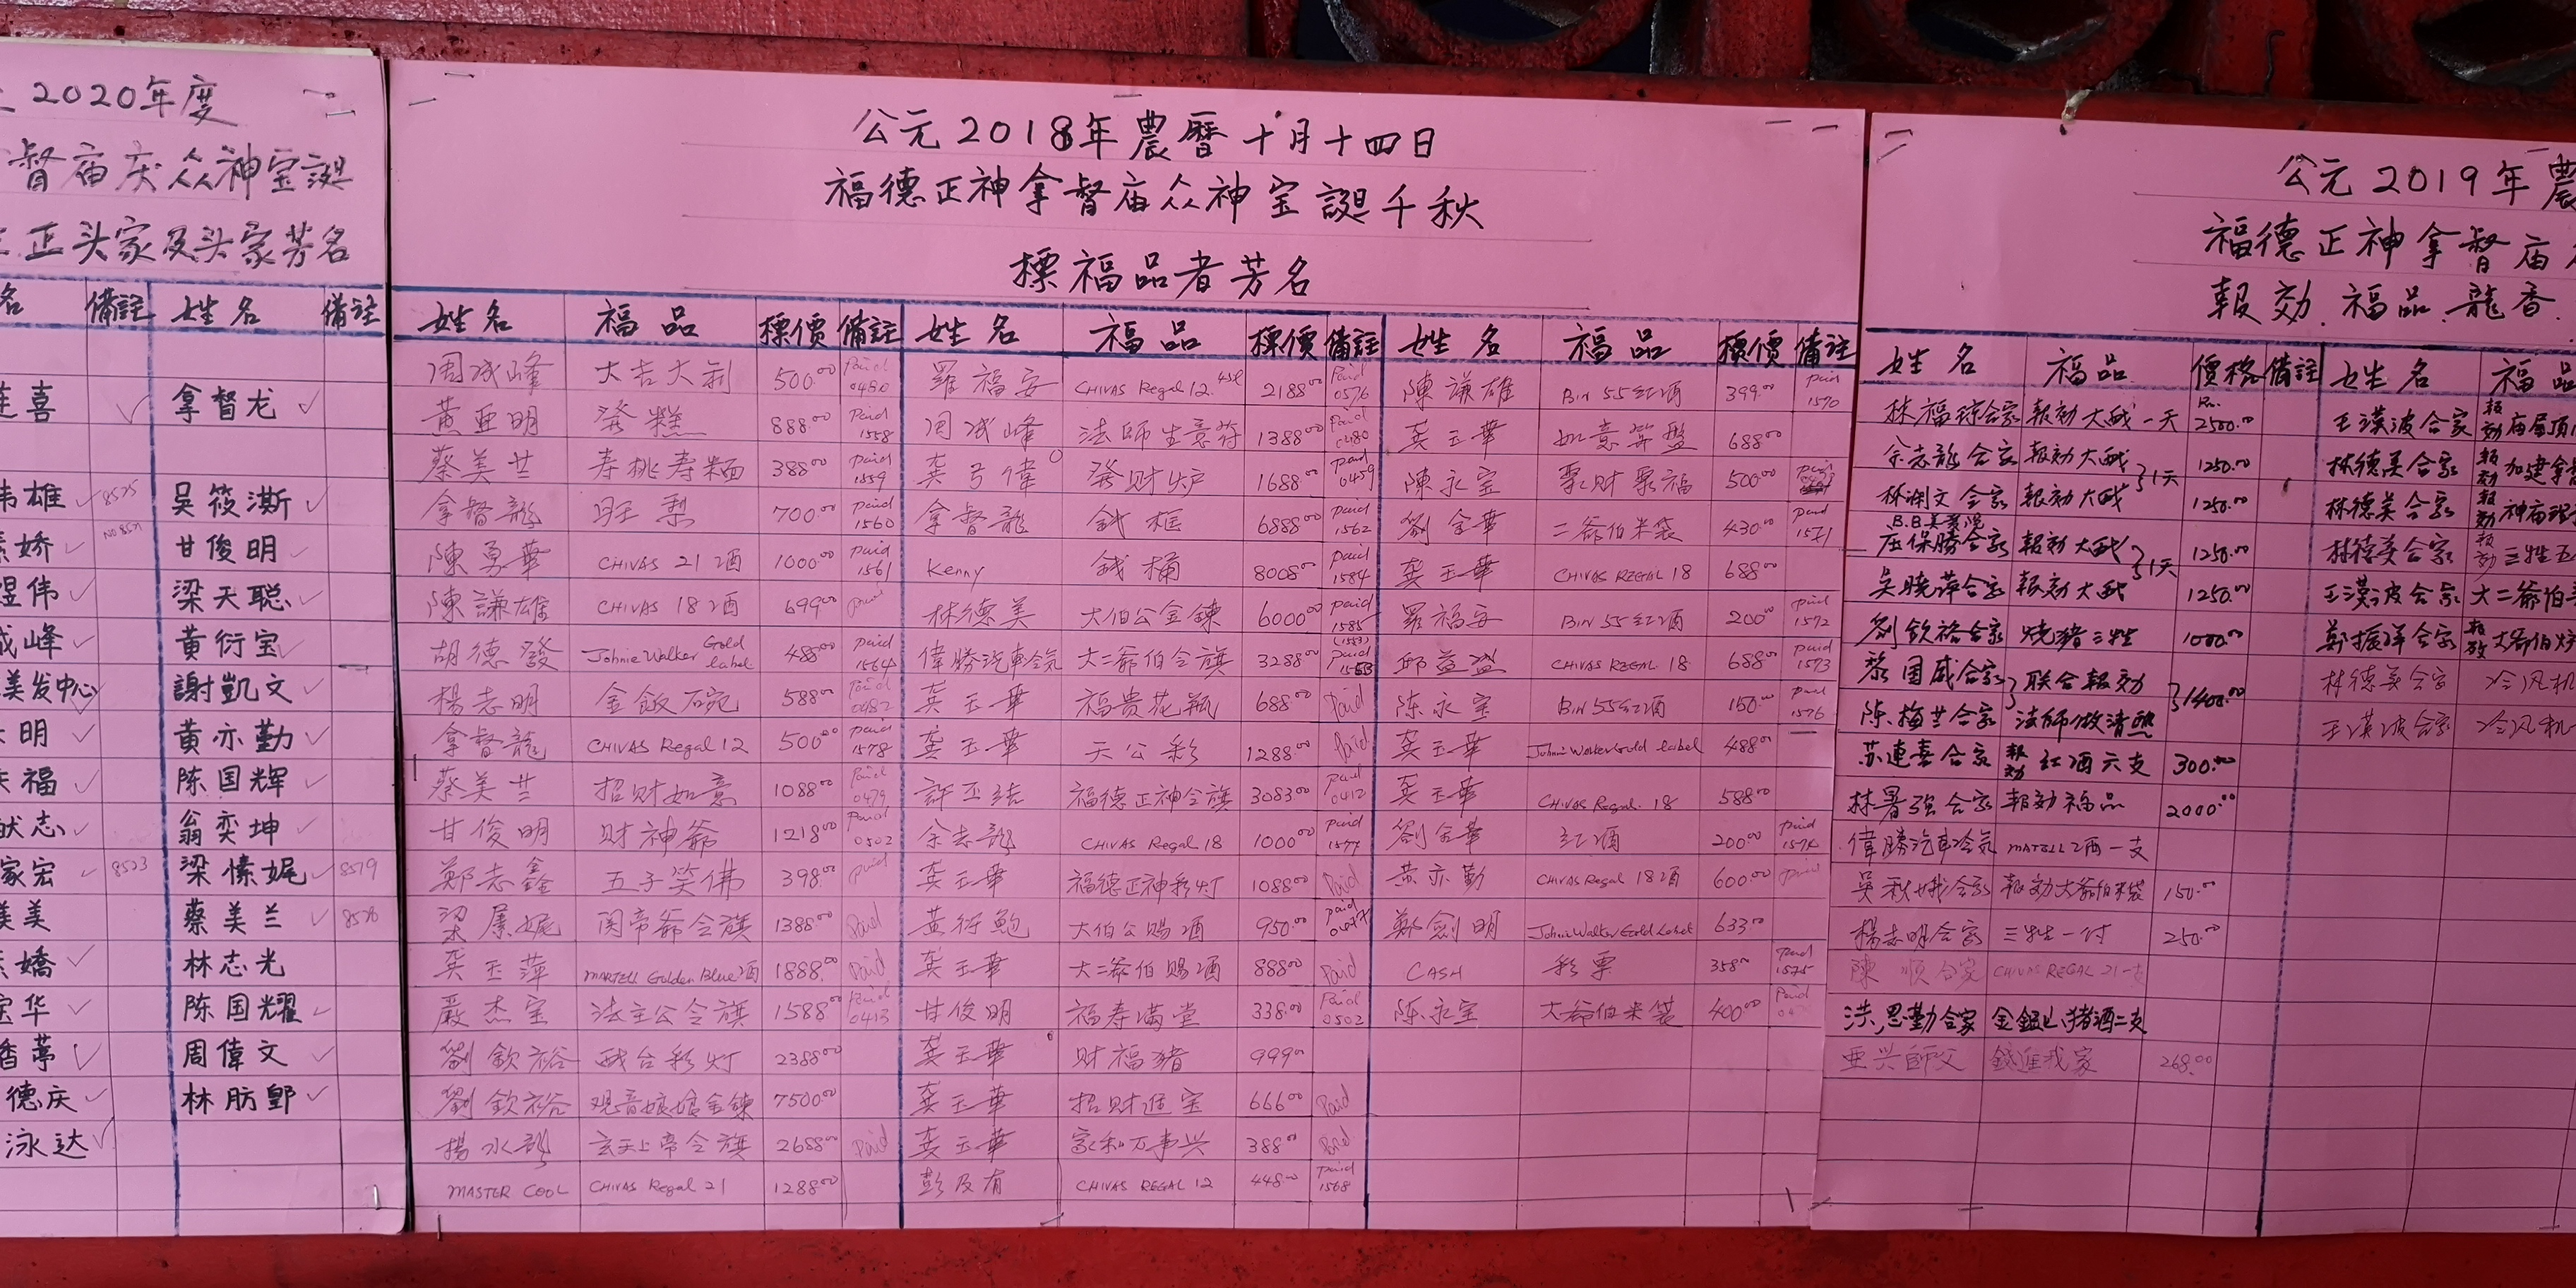 2020年度
督庙庆众神宝誔
正头家及头家芳名
名 備註 姓名 備註
喜 拿督龙
伟雄 8525 吴筱澌
娇 甘俊明
煜伟 梁天聪
成峰 黄衍宝
美发中心 謝凱文
明 黄亦勤
福 陈国辉
志 翁奕坤
家宏 8523 梁愫娓 8519
美 蔡美兰
嬌 林志光
宝华 陈国耀
周偉文
德庆 林肪郢
泳达
公元2018年農曆十月十四日
福德正神拿督庙众神宝誔千秋
標福品者芳名
姓名 福品 標價 備註 姓名 福品 標價 備註 姓名 福品 標價 備註
周成峰 大吉大利 500.00 Paid 0480 羅福安 CHIVAS Regal 12. 2188.00 Paid 0576 陳謙雄 Bin 55红酒 399.00 paid 1570
黄亚明 發糕 888.00 Paid 1558 周成峰 法師生意符 1388.00 Paid 0480 龚玉華 如意算盤 688.00
蔡美兰 寿桃寿麺 388.00 paid 1559 龚弓偉 發财炉 1688.00 paid 0459 陳永宝 聚财聚福 500.00
拿督龍 旺梨 700.00 paid 1560 拿督龍 錢框 6888.00 paid 1562 劉金華 二爺伯米袋 430.00 paid 1571
陳勇華 CHIVAS 21酒 1000.00 paid 1561 Kenny 錢桶 8008.00 paid 1584 龚玉華 CHIVAS REGAL 18 688.00
陳謙雄 CHIVAS 18酒 699.00 paid 林德美 大伯公金鍊 6000.00 paid 1585 羅福安 Bin 55红酒 200.00 paid 1572
胡德發 Johnie Walker Gold label 488.00 paid 1564 偉勝汽車冷気 大二爺伯令旗 3288.00 paid 邱益盛 CHIVAS REGAL 18 688.00 paid 1573
楊志明 金飯碗 588.00 paid 0482 龚玉華 福贵花瓶 688.00 paid 陈永宝 Bin 55红酒 150.00 paid 1576
拿督龍 CHIVAS Regal 12 500.00 paid 1578 龚玉華 天公彩 1288.00 paid 龚玉華 Johnie Walker Gold label 488.00
蔡美兰 招财如意 1088.00 Paid 0479 許玉結 福德正神令旗 3083.00 paid 0412 龚玉華 CHIVAS Regal. 18 588.00
甘俊明 财神爺 1218.00 Paid 0502 余志龍 CHIVAS Regal 18 1000.00 paid 1577 劉金華 红酒 200.00 paid 1574
鄭志鑫 五子笑佛 398.00 paid 龚玉華 福德正神彩灯 1088.00 Paid 黄亦勤 CHIVAS Regal 18酒 600.00 paid
梁愫娓 関帝爺令旗 1388.00 Paid 黄衍鮑 大伯公赐酒 950.00 paid 鄭劍明 Johnie Walker Gold Label 633.00
龚玉萍 MARTELL Golden Blue酒 1888.00 Paid 龚玉華 大二爺伯赐酒 888.00 Paid CASH 彩票 358.00 paid 1575
嚴杰宝 法主公令旗 1588.00 Paid 0413 甘俊明 福寿满堂 338.00 Paid 0502 陈永宝 大爺伯米袋 400.00 Paid
劉欽裕 戏台彩灯 2388.00 龚玉華 财福猪 999.00
劉欽裕 观音娘娘金鍊 7500.00 龚玉華 招财進宝 666.00 Paid
楊水龍 玄天上帝令旗 2688.00 Paid 龚玉華 家和万事兴 388.00 Paid
MASTER COOL CHIVAS Regal 21 1288.00 彭及有 CHIVAS REGAL 12 448.00 paid 1568
公元2019年農
福德正神拿督庙
報効.福品.龍香.
姓名 福品 價格 備註 姓名 福品
林福琼合家 報効大戏一天 Rm. 2500.00 王漢波合家 報効庙屋頂
余志龍合家 報効大戏 1天 1250.00 林德美合家 報効加建拿督
林渊文合家 報効大戏 1250.00 林德美合家 報効神庙
B.B美養院
庄保勝合家 報効大戏 1天 1250.00 林德美合家 報効三牲五
吴曉萍合家 報効大戏 1250.00 王漢波合家 大二爺伯
劉欽裕合家 烧猪三牲 1000.00 鄭振祥合家 報効大爺伯炉
蔡国威合家 联合報効 1400.00 林德美合家 冷风机
陈梅兰合家 法師做清醮 王漢波合家 冷风机
苏連喜合家 報効红酒六支 300.00
林署強合家 報効福品 2000.00
偉勝汽車冷気 MARTELL酒一支
吴秋娥合家 報効大爺伯米袋 150.00
楊志明合家 三牲一付 250.00
陳順合家 CHIVAS REGAL 21一支
洪思勤合家 金錢山,猪酒二支
亚兴師父 錢進我家 268.00